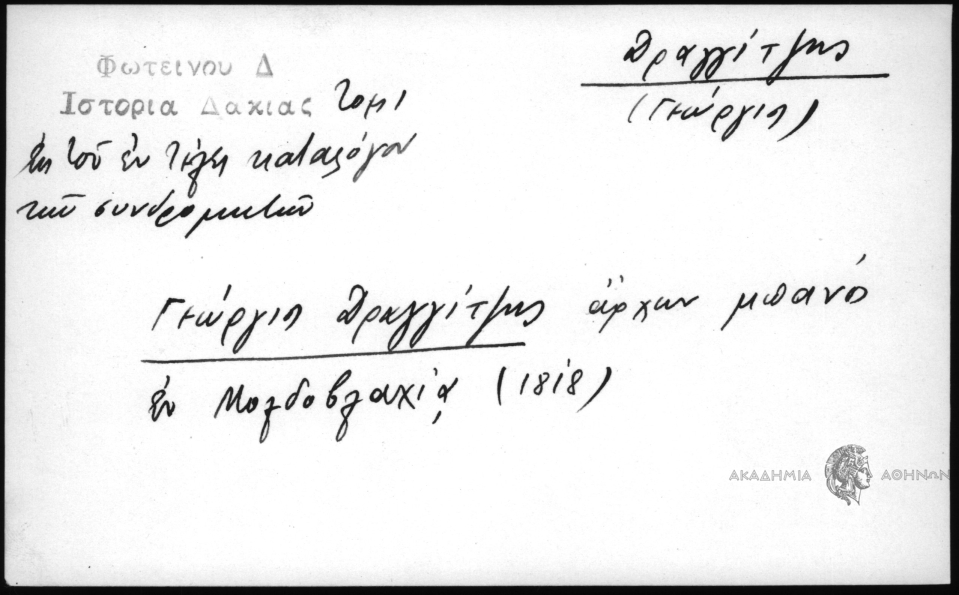 Φωτεινου Δ
Ιστορια Δακιας τομ1
Δραγγίτζης
(Γεώργιος)
ἐκ τοῦ ἐν τέλει καταλόγου
τῶν συνδρομητῶν
Γεώργιος Δραγγίτζης ἄρχων μπάνος
ἐν Μολδοβλαχίᾳ (1818)
ΑΚΑΔΗΜΙΑ ΑΘΗΝΩΝ